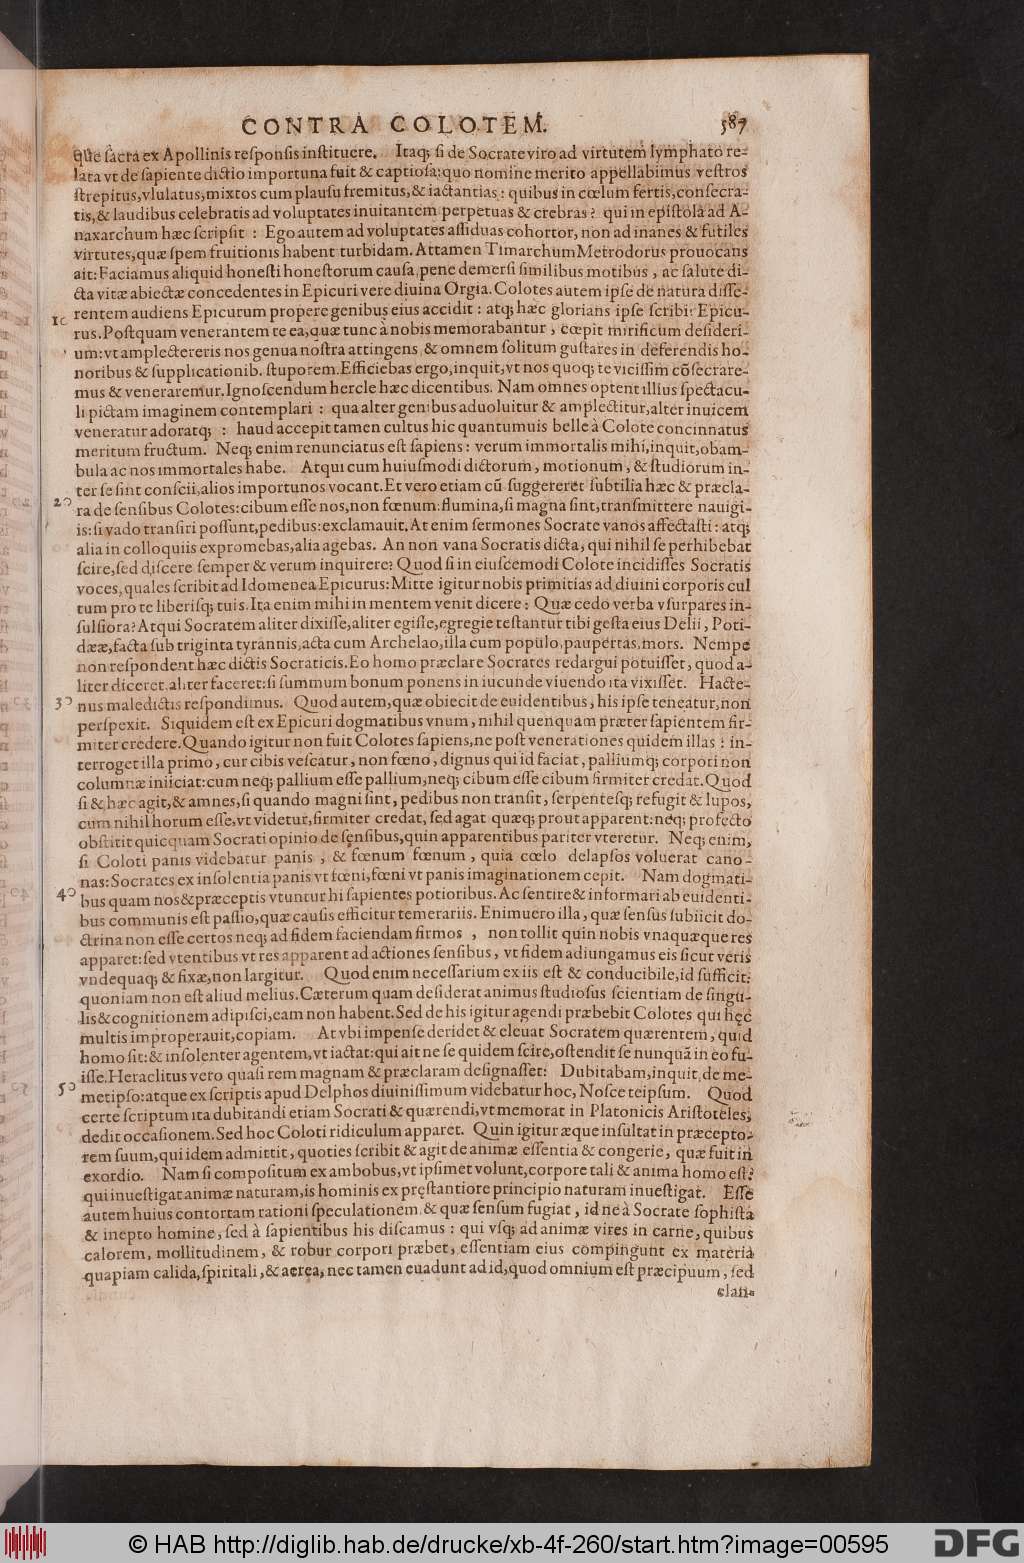 CONTRA COLOTEM. 587
que sacra ex Apollinis responsis instituere. Itaq; si de Socrate viro ad virtutem lymphato re-
lata vt de sapiente dictio importuna fuit & captiosa: quo nomine merito appellabimus vestros
strepitus, vlulatus, mixtos cum plausu fremitus, & iactantias: quibus in cœlum fertis, consecra-
tis, & laudibus celebratis ad voluptates inuitantem perpetuas & crebras? qui in epistola ad A-
naxarchum hæc scripsit: Ego autem ad voluptates assiduas cohortor, non ad inanes & futiles
virtutes, quæ spem fruitionis habent turbidam. Attamen Timarchum Metrodorus prouocans
ait: Faciamus aliquid honesti honestorum causa, pene demersi similibus motibus, ac salute di-
cta vitæ abiectæ concedentes in Epicuri vere diuina Orgia. Colotes autem ipse de natura disse-
rentem audiens Epicurum propere genibus eius accidit: atq; hæc glorians ipse scribit Epicu-
10 rus. Postquam venerantem te ea, quæ tunc à nobis memorabantur, cœpit mirificum desideri-
um: vt amplectereris nos genua nostra attingens, & omnem solitum gustares in deferendis ho-
noribus & supplicationib. stuporem. Efficiebas ergo, inquit, vt nos quoq; te vicissim cõsecrare-
mus & veneraremur. Ignoscendum hercle hæc dicentibus. Nam omnes optent illius spectacu-
li pictam imaginem contemplari: qua alter genibus aduoluitur & amplectitur, alter inuicem
veneratur adoratq;: haud accepit tamen cultus hic quantumuis belle à Colote concinnatus
meritum fructum. Neq; enim renunciatus est sapiens: verum immortalis mihi, inquit, obam-
bula ac nos immortales habe. Atqui cum huiusmodi dictorum, motionum, & studiorum in-
ter se sint conscii, alios importunos vocant. Et vero etiam cũ suggereret subtilia hæc & præcla-
20 ra de sensibus Colotes: cibum esse nos, non fœnum: flumina, si magna sint, transmittere nauigi-
is: si vado transiri possunt, pedibus: exclamauit. At enim sermones Socrate vanos affectasti: atq;
alia in colloquiis expromebas, alia agebas. An non vana Socratis dicta, qui nihil se perhibebat
scire, sed discere semper & verum inquirere? Quod si in eiuscemodi Colote incidisses Socratis
voces, quales scribit ad Idomenea Epicurus: Mitte igitur nobis primitias ad diuini corporis cul
tum pro te liberisq; tuis. Ita enim mihi in mentem venit dicere: Quæ cedo verba vsurpares in-
sulsiora? Atqui Socratem aliter dixisse, aliter egisse, egregie testantur tibi gesta eius Delii, Poti-
dææ, facta sub triginta tyrannis, acta cum Archelao, illa cum populo, paupertas, mors. Nempe
non respondent hæc dictis Socraticis. Eo homo præclare Socrates redargui potuisset, quod a-
liter diceret, aliter faceret: si summum bonum ponens in iucunde viuendo ita vixisset. Hacte-
30 nus maledictis respondimus. Quod autem, quæ obiecit de euidentibus, his ipse teneatur, non
perspexit. Siquidem est ex Epicuri dogmatibus vnum, nihil quenquam præter sapientem fir-
miter credere. Quando igitur non fuit Colotes sapiens, ne post venerationes quidem illas: in-
terroget illa primo, cur cibis vescatur, non fœno, dignus qui id faciat, palliumq; corpori non
columnæ iniiciat: cum neq; pallium esse pallium, neq; cibum esse cibum firmiter credat. Quod
si & hæc agit, & amnes, si quando magni sint, pedibus non transit, serpentesq; refugit & lupos,
cum nihil horum esse, vt videtur, firmiter credat, sed agat quæq; prout apparent: neq; profecto
obstitit quicquam Socrati opinio de sensibus, quin apparentibus pariter vteretur. Neq; enim,
si Coloti panis videbatur panis, & fœnum fœnum, quia cœlo delapsos voluerat cano-
nas: Socrates ex insolentia panis vt fœni, fœni vt panis imaginationem cepit. Nam dogmati-
40 bus quam nos & præceptis vtuntur hi sapientes potioribus. Ac sentire & informari ab euidenti-
bus communis est passio, quæ causis efficitur temerariis. Enimuero illa, quæ sensus subiicit do-
ctrina non esse certos neq; ad fidem faciendam firmos, non tollit quin nobis vnaquæque res
apparet: sed vtentibus vt res apparent ad actiones sensibus, vt fidem adiungamus eis sicut veris
vndequaq; & fixæ, non largitur. Quod enim necessarium ex iis est & conducibile, id sufficit:
quoniam non est aliud melius. Cæterum quam desiderat animus studiosus scientiam de singu-
lis & cognitionem adipisci, eam non habent. Sed de his igitur agendi præbebit Colotes qui hęc
multis improperauit, copiam. At vbi impense deridet & eleuat Socratem quærentem, quid
homo sit: & insolenter agentem, vt iactat: qui ait ne se quidem scire, ostendit se nunquã in eo fu-
isse. Heraclitus vero quasi rem magnam & præclaram designasset: Dubitabam, inquit, de me-
50 metipso: atque ex scriptis apud Delphos diuinissimum videbatur hoc, Nosce teipsum. Quod
certe scriptum ita dubitandi etiam Socrati & quærendi, vt memorat in Platonicis Aristoteles,
dedit occasionem. Sed hoc Coloti ridiculum apparet. Quin igitur æque insultat in præcepto-
rem suum, qui idem admittit, quoties scribit & agit de animæ essentia & congerie, quæ fuit in
exordio. Nam si compositum ex ambobus, vt ipsimet volunt, corpore tali & anima homo est?
qui inuestigat animæ naturam, is hominis ex pręstantiore principio naturam inuestigat. Esse
autem huius contortam rationi speculationem & quæ sensum fugiat, id ne à Socrate sophista
& inepto homine, sed à sapientibus his discamus: qui vsq; ad animæ vires in carne, quibus
calorem, mollitudinem, & robur corpori præbet, essentiam eius compingunt ex materia
quapiam calida, spiritali, & aerea, nec tamen euadunt ad id, quod omnium est præcipuum, sed
clan-
© HAB http://diglib.hab.de/drucke/xb-4f-260/start.htm?image=00595
DFG